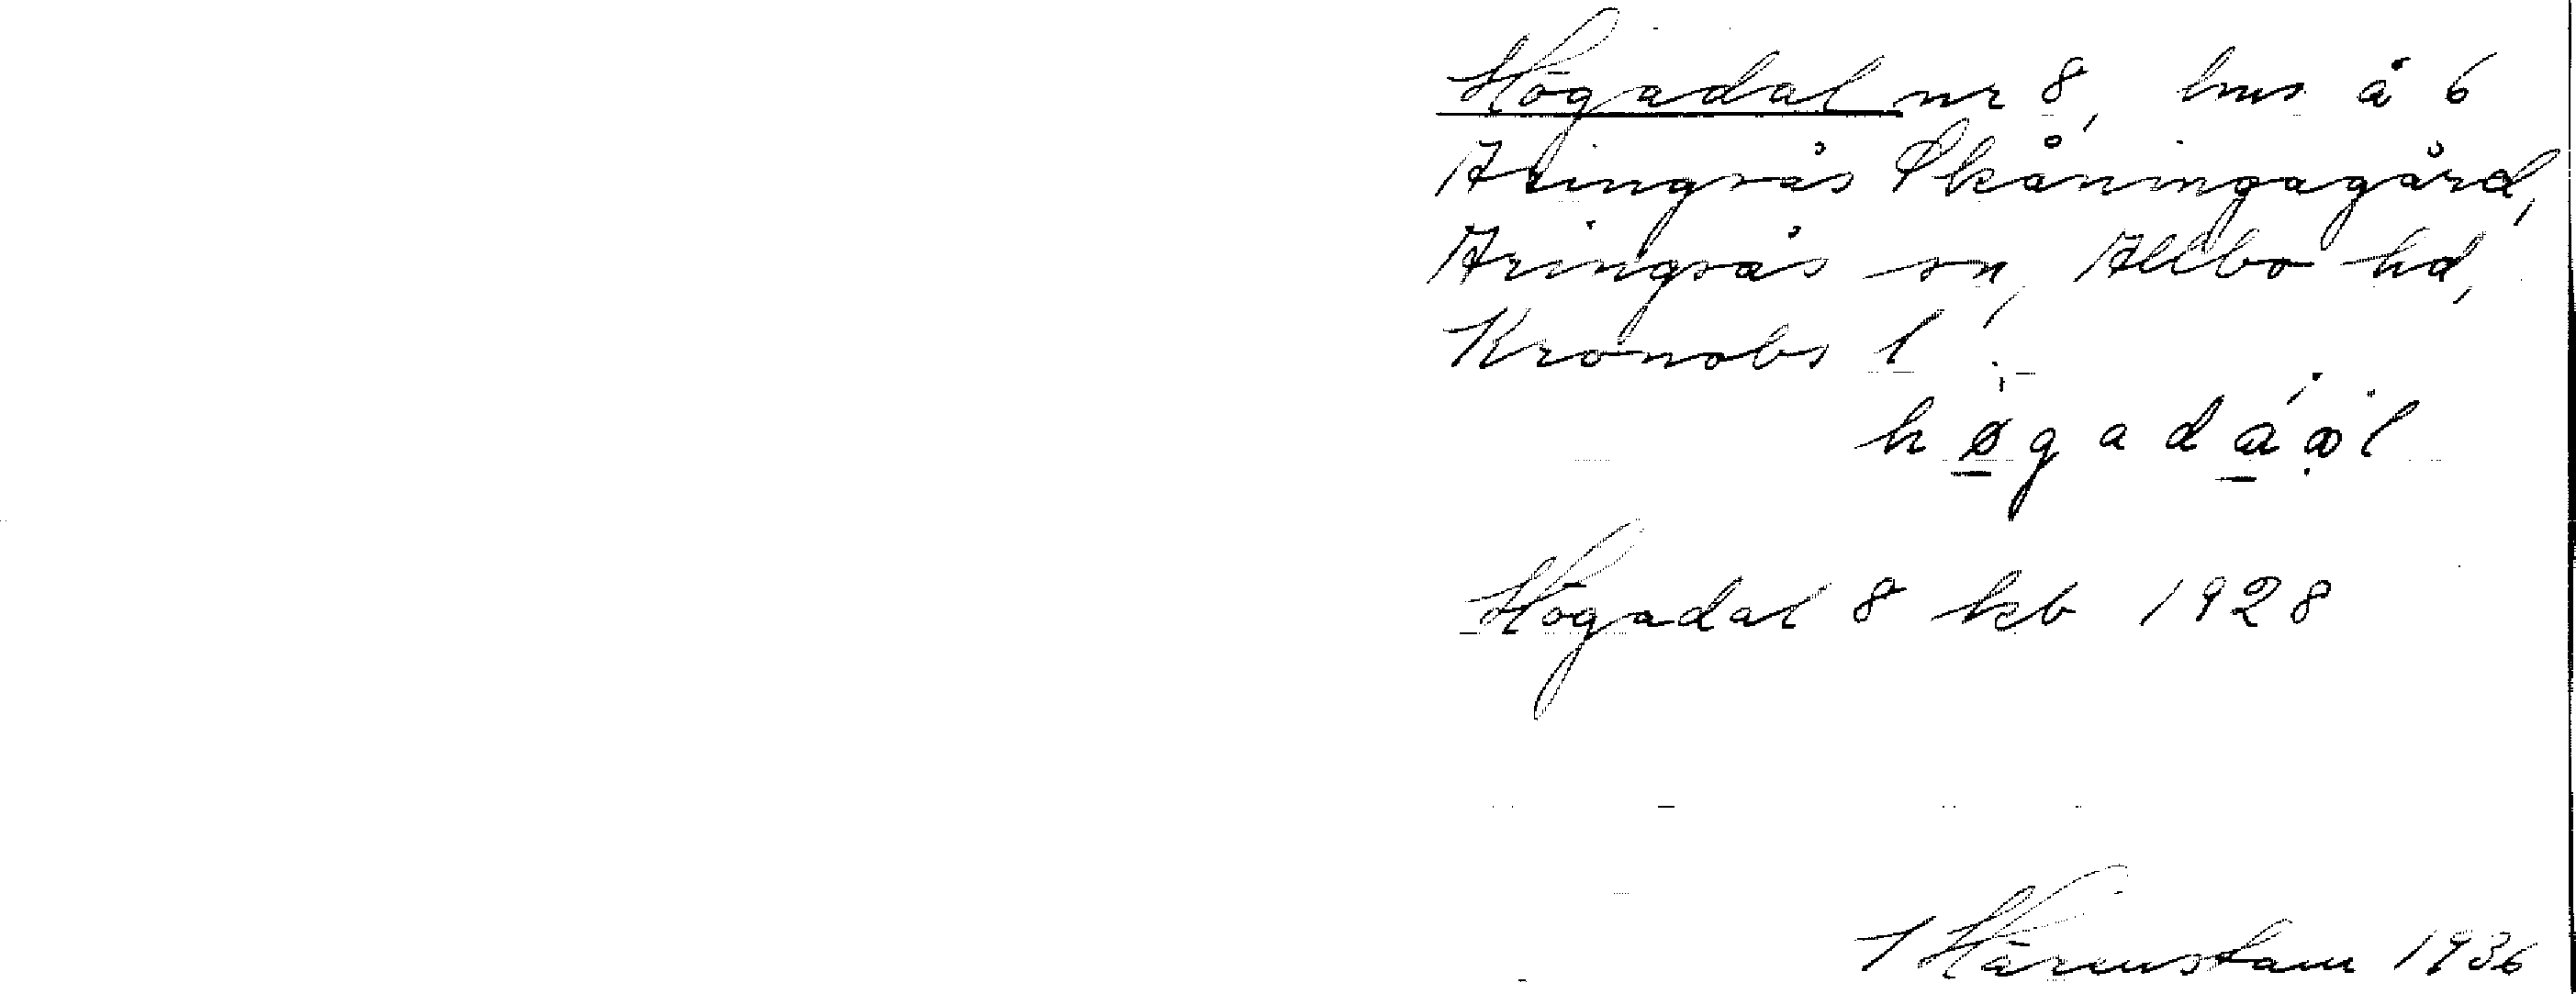 Högadal nr 8, hus å 6
Aringsås Skåningagård,
Aringsås sn, Allbo hd,
Kronobs l.
Högadal 8 kb 1928
Härenstam 1936